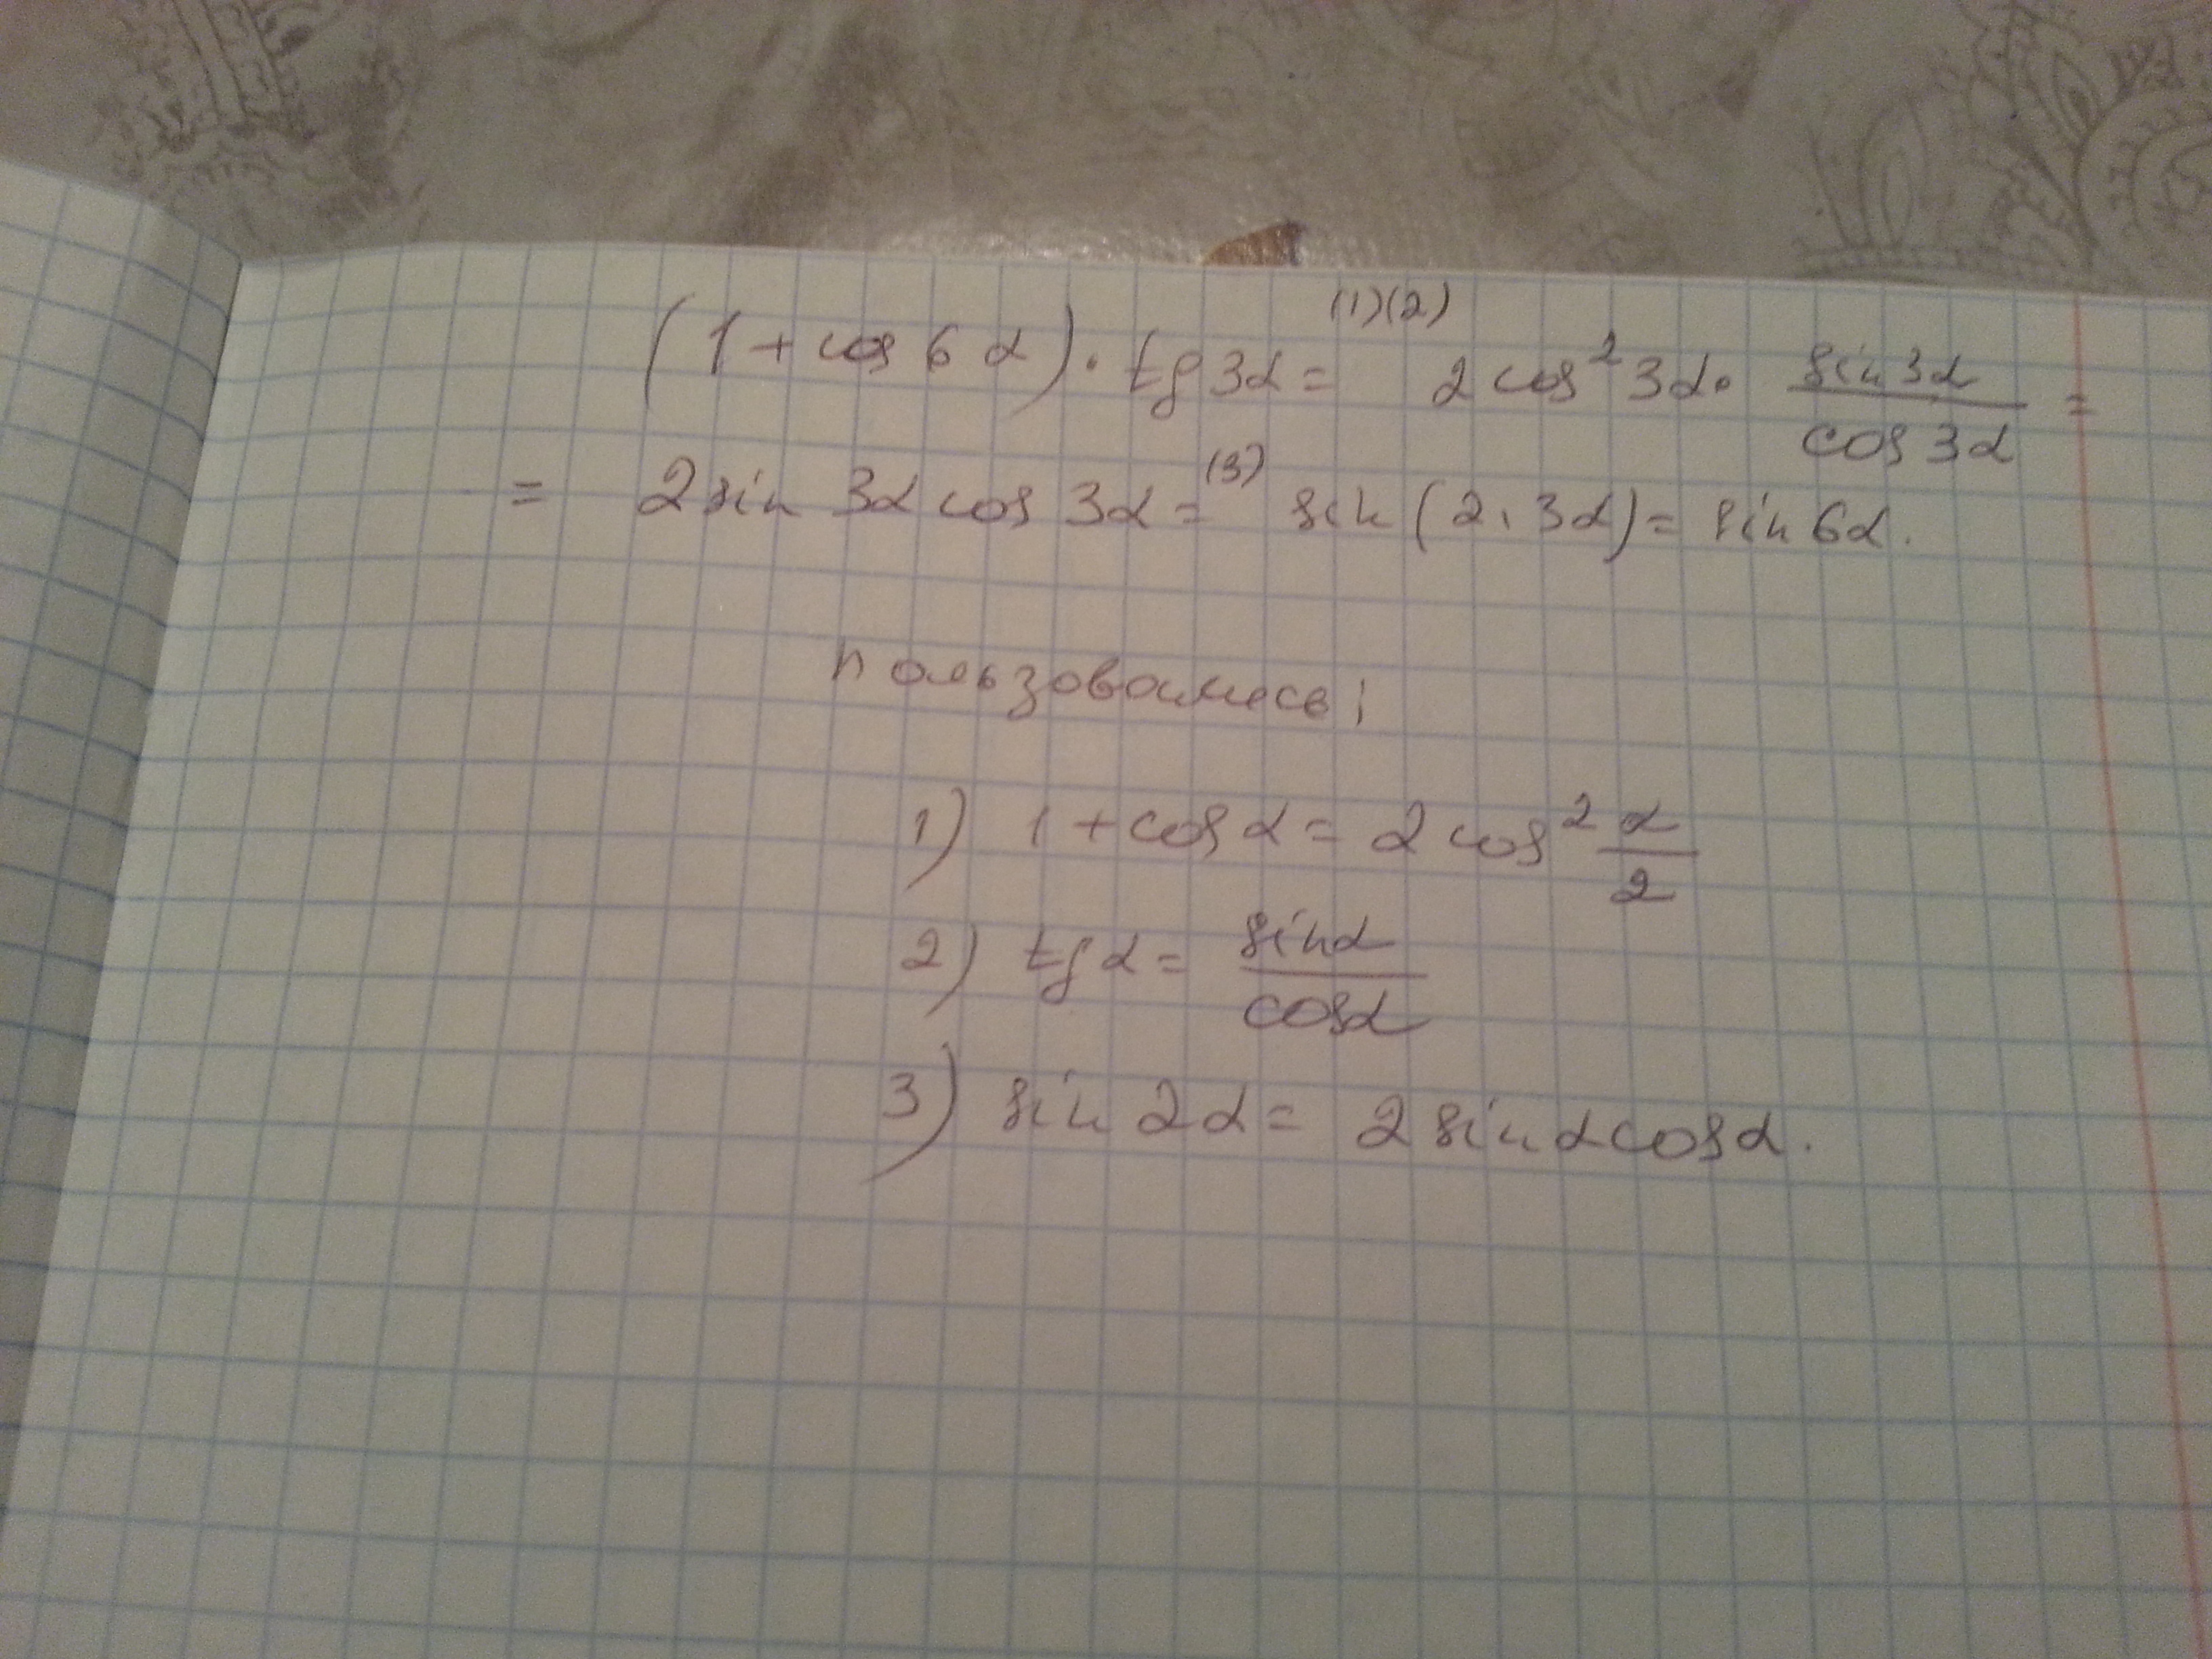 (1 + cos 6α) · tg 3α = (1)(2) 2 cos² 3α · sin 3α / cos 3α =
= 2 sin 3α cos 3α = (3) sin (2 · 3α) = sin 6α.
пользовались:
1) 1 + cos α = 2 cos² α/2
2) tg α = sin α / cos α
3) sin 2α = 2 sin α cos α.